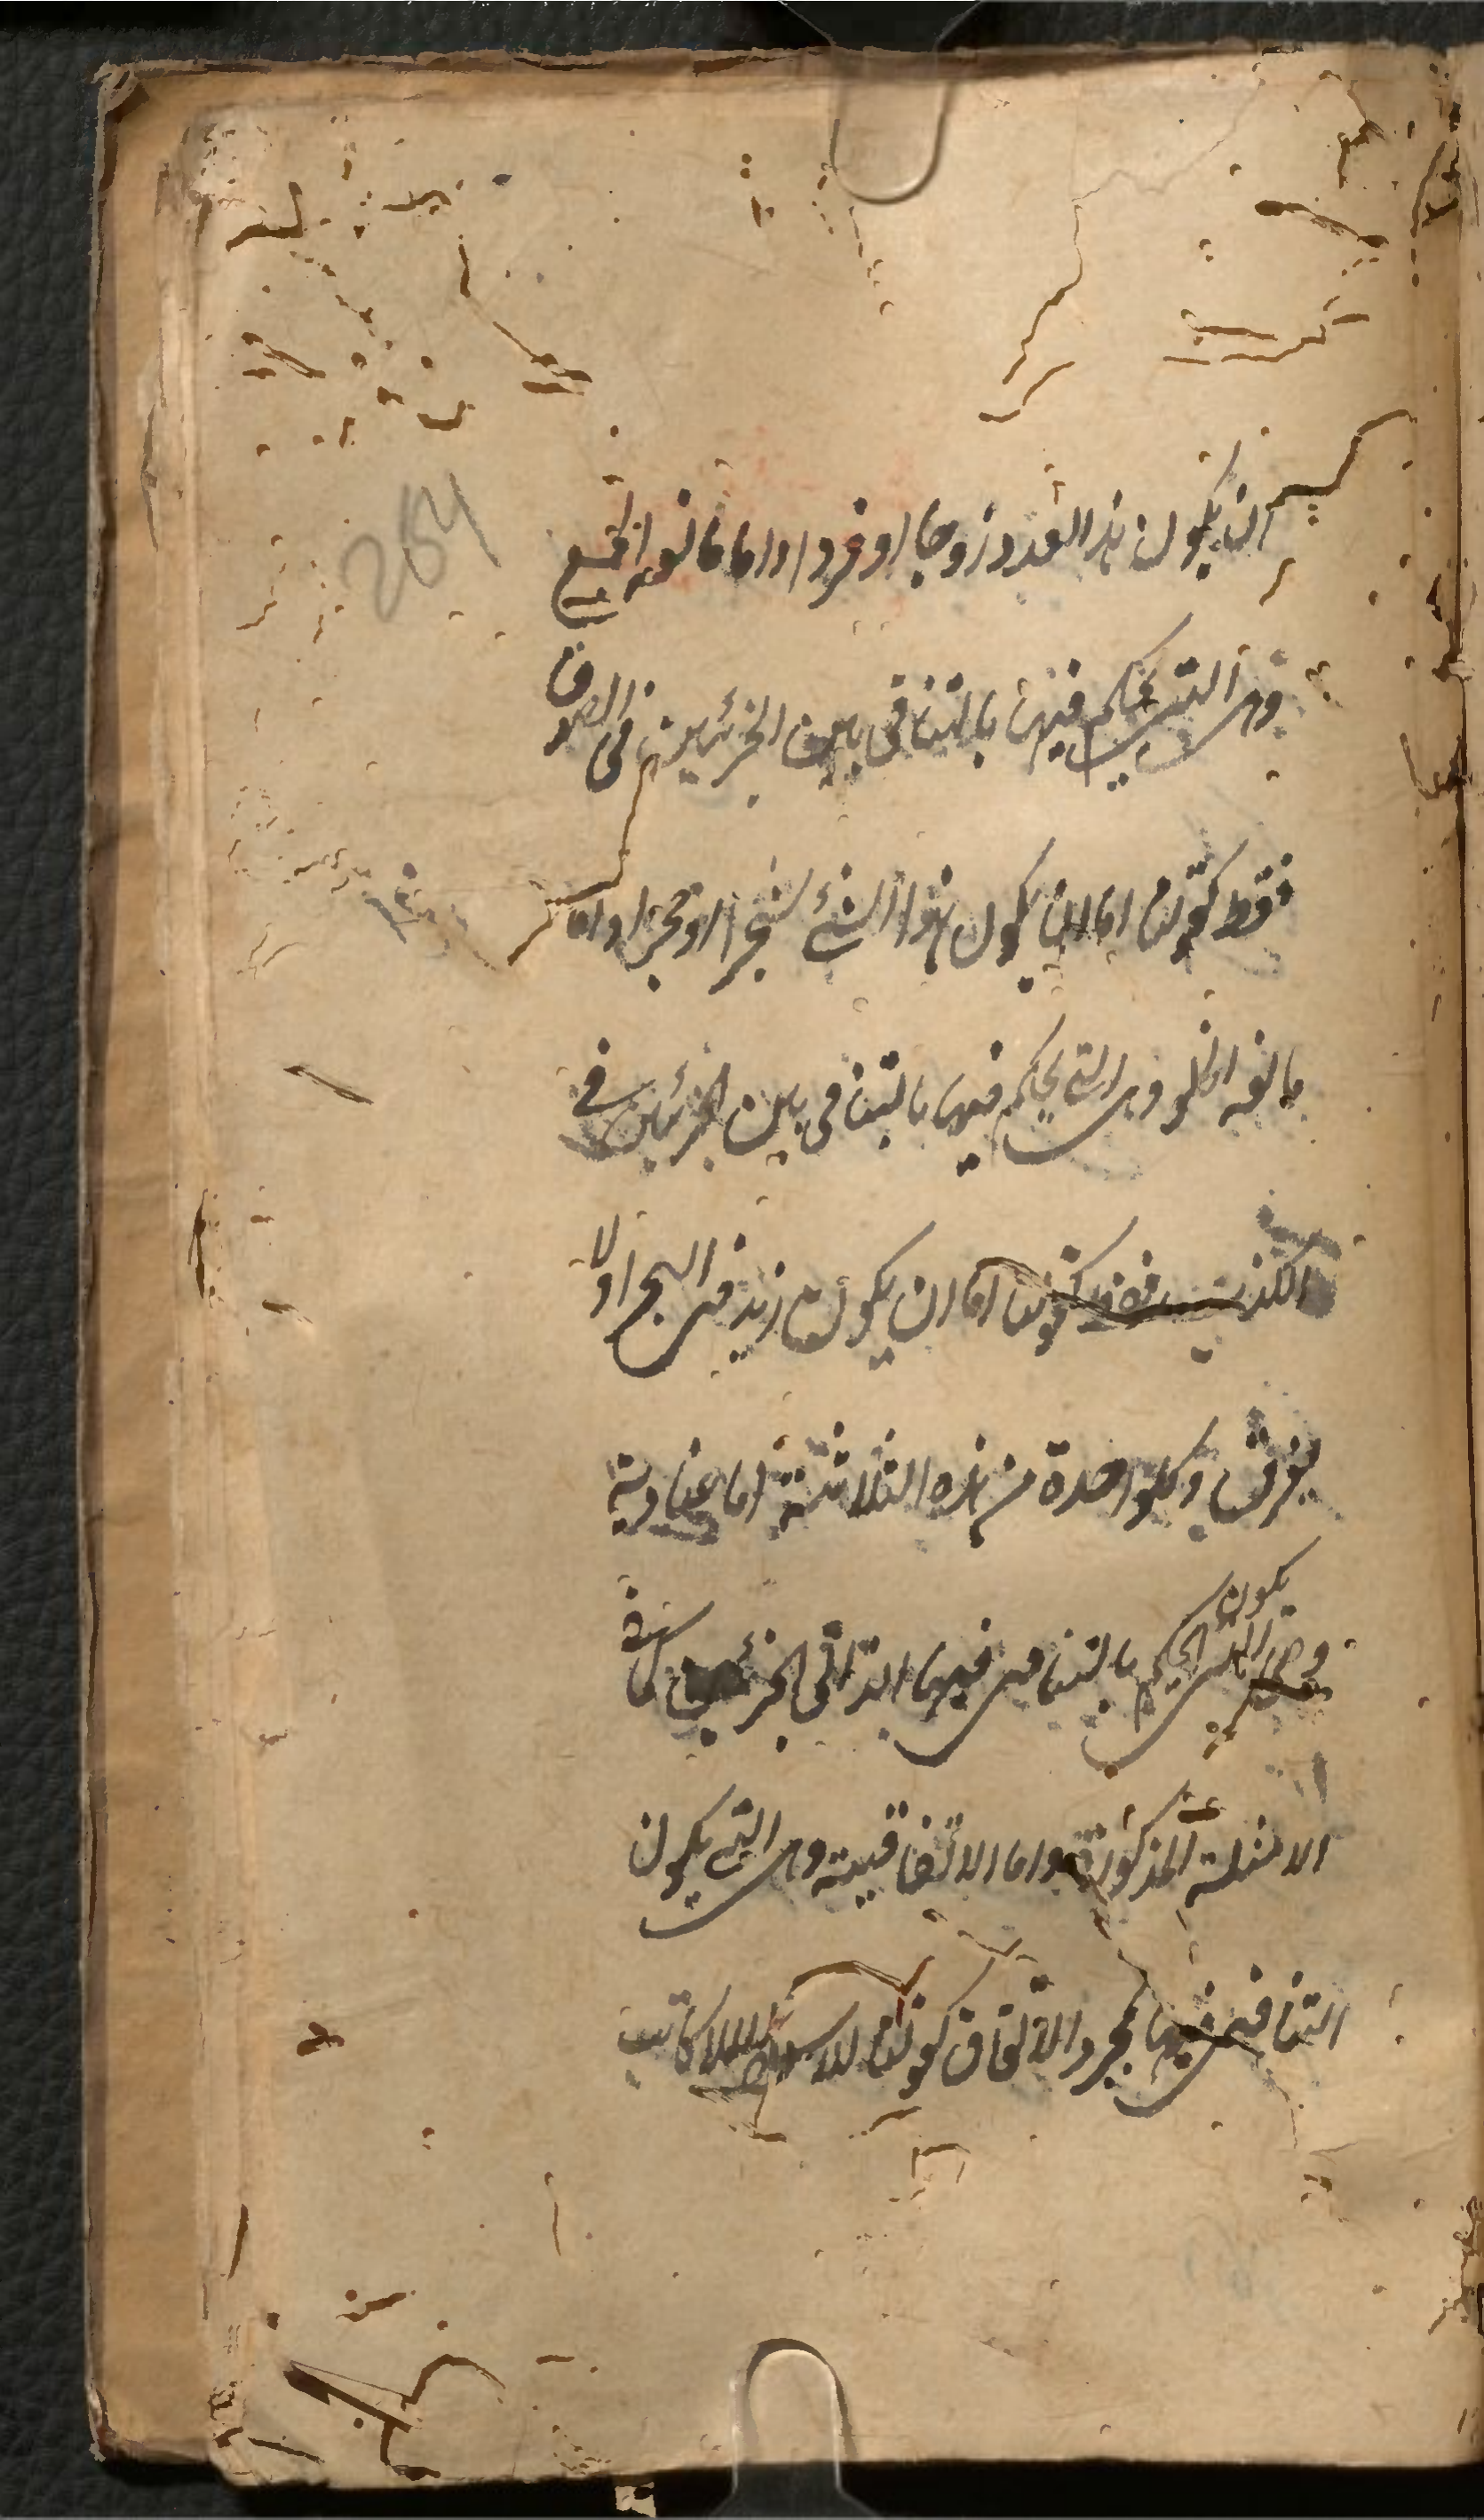 264
ان يكون هذا العدد زوجا او فردا واما مانعة الجمع
وهى التى يحكم فيها بالتنافى بين الجزئين فى الصدق
فقط كقولنا اما ان يكون هذا الشئ شجرا او حجرا واما
مانعة الخلو وهى التى يحكم فيها بالتنافى بين الجزئين فى
الكذب فقط كقولنا اما ان يكون زيد فى البحر اولا
يغرق وكلواحدة من هذه الثلاثة اما عنادية
يكون
وهى التى الحكم بالتنافى فيها لذاتى الجزئين كما فى
الامثلة المذكورة واما الاتفاقية وهى التى يكون
التنافى فيها بمجرد الاتفاق كقولنا للاسود اللاكاتب